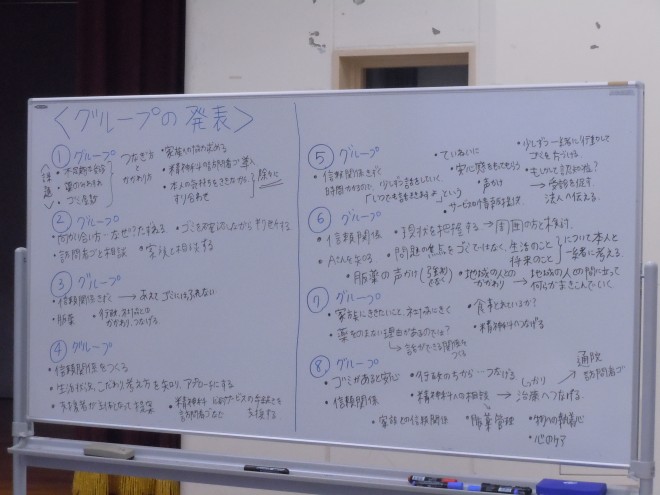 〈グループの発表〉
① グループ
〈課題〉
・ゴミ屋敷
つなぎ方と
かかわり
・家族の協力を求める
・精神科の訪問看ご導入
・本人の気持ちをききながら、
すり合わせ
徐々に
② グループ
・訪問看ごと相談
・家族と相談する
③ グループ
・信頼関係きずく → あえてゴミにはふれない
・服薬
・行政、
かかわり、つなげる。
④ グループ
・信頼関係をつくる
・生活状況、こだわり、考え方を知り、アプローチする
・支援者が主体となって
・精神科
訪問看ごなど
を支援する
⑤ グループ
・信頼関係きずく
時間かかるので、少しずつ話をしていく
・ていねいに
・安心感をもってもらう
声かけ
・サービスの情報提供
・少しずつ一緒に行動して
ゴミを片づける
・もしかして認知症?
→ 受診を促す
法人へ伝える。
⑥ グループ
・信頼関係
・現状を把握する → 周囲の方と検討。
・Aさんを知る
・問題の焦点をゴミではなく、生活のこと
将来のこと
について、本人と
一緒に考える。
・服薬の声かけ
・地域の人との
かかわり
→ 地域の人の間に立って
何らかまきこんでいく
⑦ グループ
・家族にききたいこと、
・食事とれているか?
・薬をのまない理由があるのでは?
→ 話ができる関係を
つくる
・精神科へつなげる
⑧ グループ
・ゴミがあると安心
・行政の方から つなげる
・信頼関係
・精神科への相談 → 治療へつなげる。
しっかり
通院
訪問看ご
・家族とも信頼関係
・服薬管理
・物への執着心
・心のケア